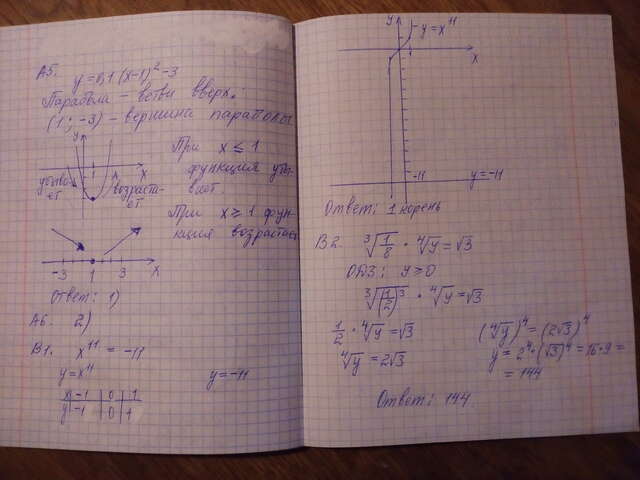 А5. y = 0,1 (x-1)² - 3
Парабола - ветви вверх.
(1; -3) - вершина параболы
y
1 x x
убывает
возрастает
При x ≤ 1
функция убывает
При x ≥ 1 функция возрастает
-3 1 3 x
Ответ: 1)
А6. 2)
В1. x¹¹ = -11
y = x¹¹ y = -11
x -1 0 1
y -1 0 1
y
y = x¹¹
1 x
-11 y = -11
Ответ: 1 корень
В2. ∛(1/8) · ∜y = √3
ОДЗ: y ≥ 0
∛((1/2)³) · ∜y = √3
1/2 · ∜y = √3
∜y = 2√3
(∜y)⁴ = (2√3)⁴
y = 2⁴ · (√3)⁴ = 16·9 =
= 144
Ответ: 144